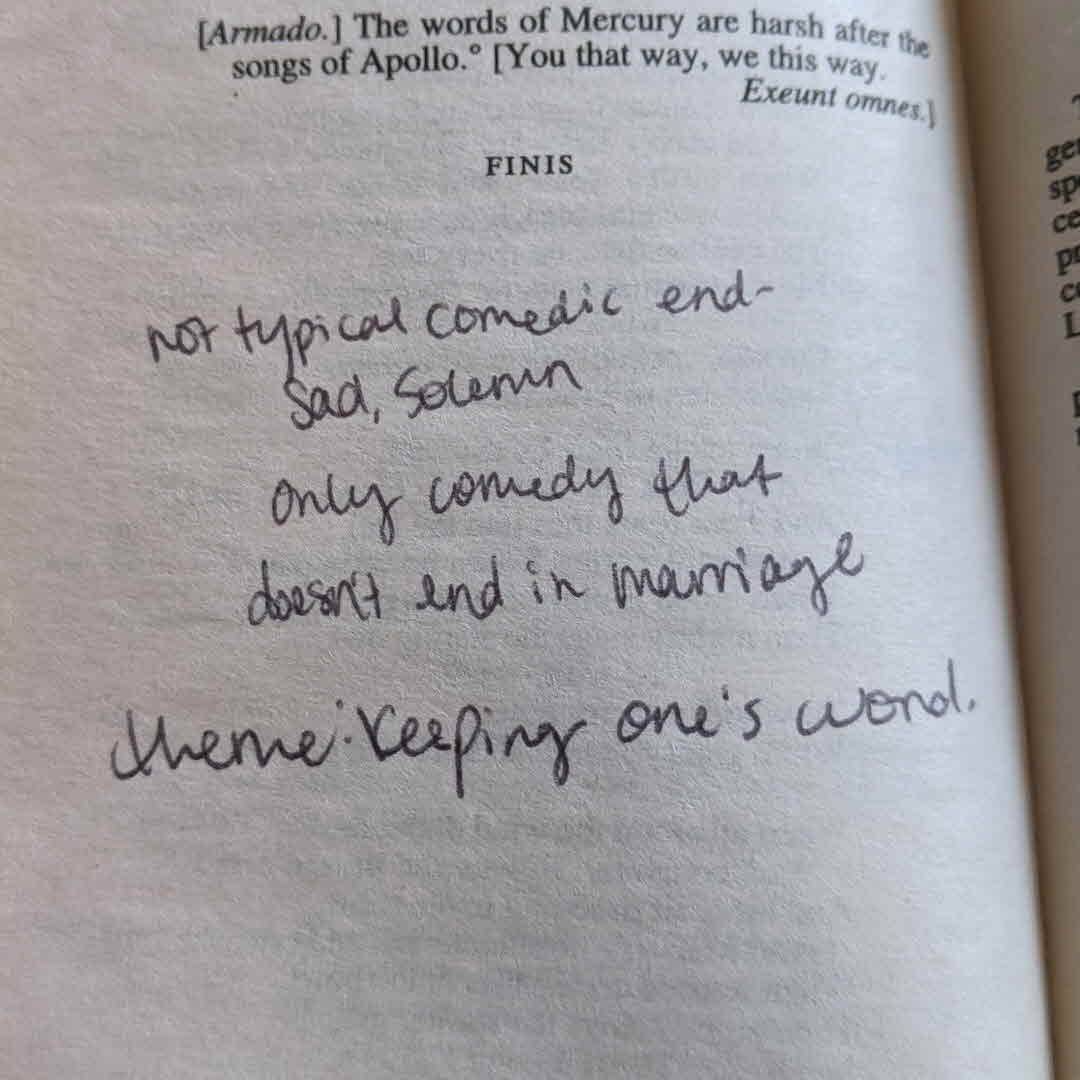 [Armado.] The words of Mercury are harsh after the
songs of Apollo.° [You that way, we this way.
Exeunt omnes.]
FINIS
not typical comedic end-
sad, solemn
only comedy that
doesn't end in marriage
theme: keeping one's word.
ge
sp
ce
pr
co
L